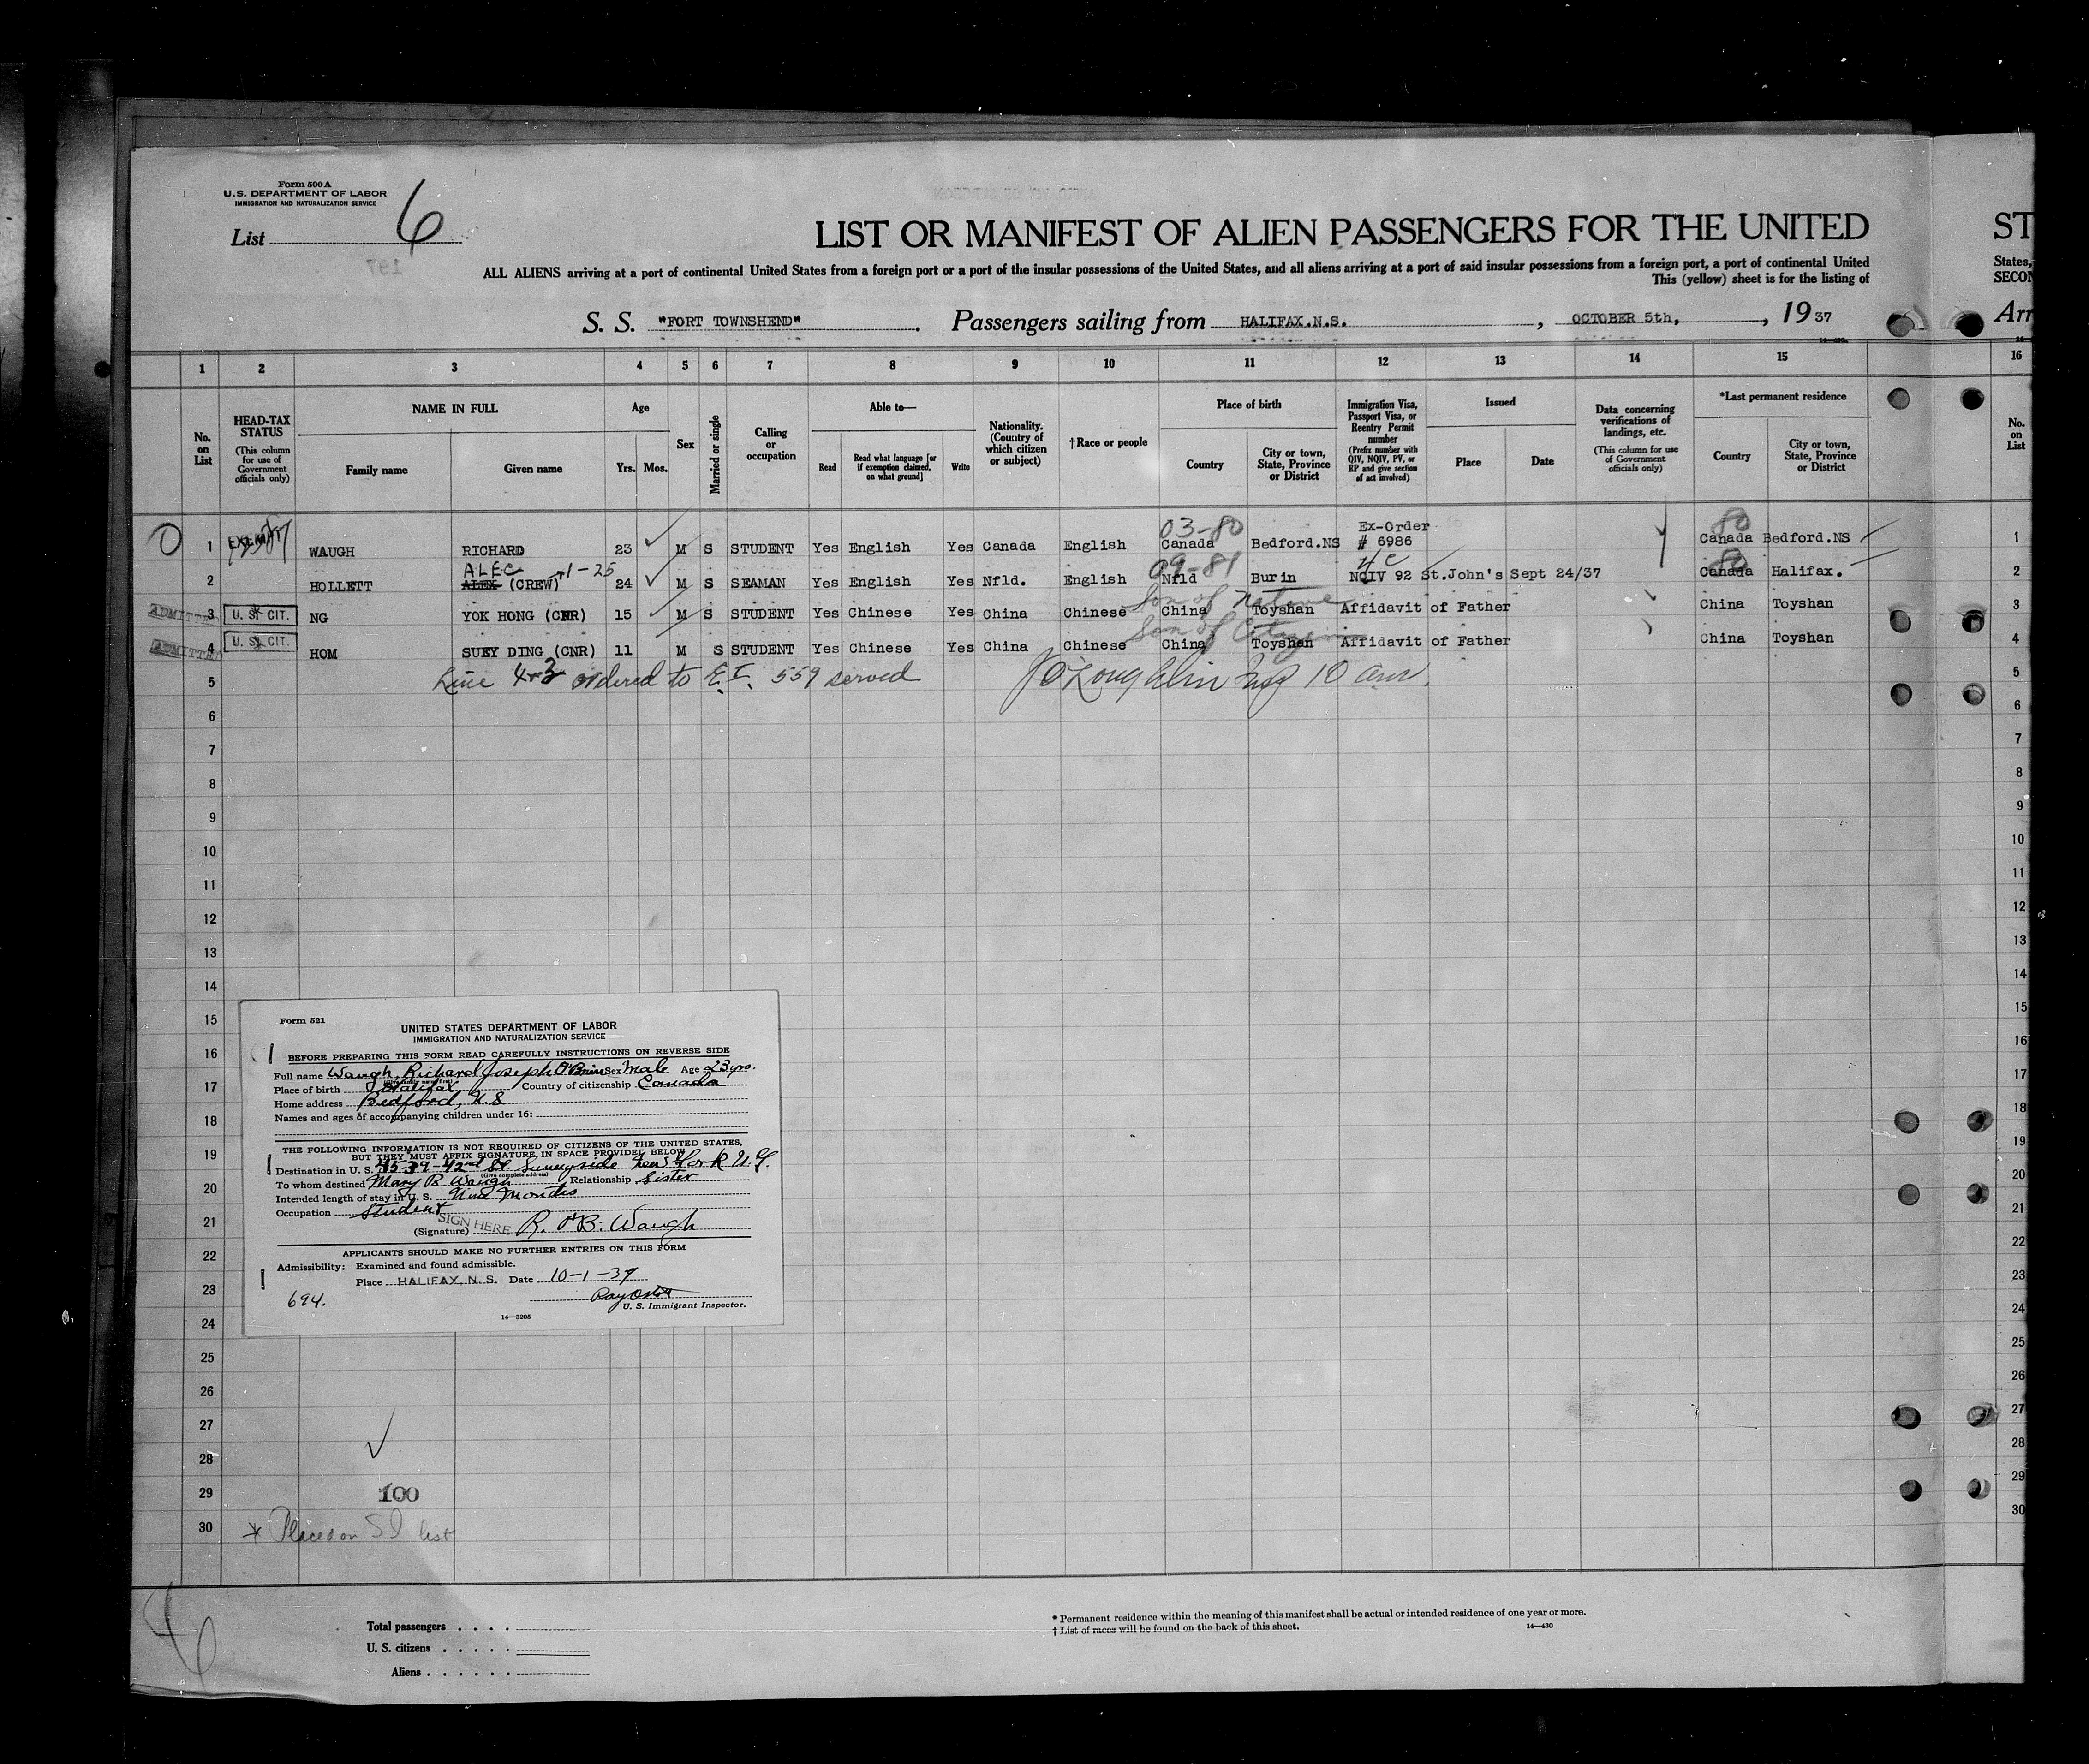 Form 500 A
U.S. DEPARTMENT OF LABOR
IMMIGRATION AND NATURALIZATION SERVICE
List 6
197
LIST OR MANIFEST OF ALIEN PASSENGERS FOR THE UNITED
ST
ALL ALIENS arriving at a port of continental United States from a foreign port or a port of the insular possessions of the United States, and all aliens arriving at a port of said insular possessions from a foreign port, a port of continental United
States,
This (yellow) sheet is for the listing of
SECON
S. S. "FORT TOWNSHEND". Passengers sailing from HALIFAX.N.S., OCTOBER 5th, , 19 37
Arr
1 2 3 4 5 6 7 8 9 10 11 12 13 14 15 16
No. on List
HEAD-TAX STATUS (This column for use of Government officials only)
NAME IN FULL
Family name
Given name
Age
Yrs. Mos.
Sex
Married or single
Calling or occupation
Able to—
Read
Read what language [or if exemption claimed, on what ground]
Write
Nationality. (Country of which citizen or subject)
†Race or people
Place of birth
Country
City or town, State, Province or District
Immigration Visa, Passport Visa, or Reentry Permit number (Prefix number with QIV, NQIV, PV, or RP and give section of act involved)
Issued
Place
Date
Data concerning verifications of landings, etc. (This column for use of Government officials only)
*Last permanent residence
Country
City or town, State, Province or District
No. on List
03-80 Ex-Order 80
1 EXEMPT WAUGH RICHARD 23 M S STUDENT Yes English Yes Canada English Canada Bedford.NS # 6986 Canada Bedford.NS 1
ALEC 1-25 09-81 4c 80
2 HOLLETT ALEX (CREW) 24 M S SEAMAN Yes English Yes Nfld. English Nfld Burin NQIV 92 St.John's Sept 24/37 Canada Halifax. 2
Son of Native
ADMITTED 3 U. S. CIT. NG YOK HONG (CNR) 15 M S STUDENT Yes Chinese Yes China Chinese China Toyshan Affidavit of Father China Toyshan 3
Son of Citizen
ADMITTED 4 U. S. CIT. HOM SUEY DING (CNR) 11 M S STUDENT Yes Chinese Yes China Chinese China Toyshan Affidavit of Father China Toyshan 4
Line 4+3 ordered to E.I. 559 served J O'Loughlin Insp 10 am.
5 5
6 6
7 7
8 8
9 9
10 10
11 11
12 12
13 13
14 14
15 15
16 16
17 17
18 18
19 19
20 20
21 21
22 22
23 23
24 24
25 25
26 26
27 27
28 28
29 29
30 30
Form 521
UNITED STATES DEPARTMENT OF LABOR
IMMIGRATION AND NATURALIZATION SERVICE
BEFORE PREPARING THIS FORM READ CAREFULLY INSTRUCTIONS ON REVERSE SIDE
Full name Waugh, Richard Joseph O'Brien Sex Male Age 23 yrs.
(Give family name first)
Place of birth Halifax Country of citizenship Canada
Home address Bedford, N.S
Names and ages of accompanying children under 16:
THE FOLLOWING INFORMATION IS NOT REQUIRED OF CITIZENS OF THE UNITED STATES,
BUT THEY MUST AFFIX SIGNATURE IN SPACE PROVIDED BELOW
Destination in U. S. 45-39-42nd St. Sunnyside New York N.Y.
(Give complete address)
To whom destined Mary B Waugh Relationship Sister
Intended length of stay in U. S. Nine Months
Occupation Student
SIGN HERE
(Signature) R. O'B. Waugh
APPLICANTS SHOULD MAKE NO FURTHER ENTRIES ON THIS FORM
Admissibility: Examined and found admissible.
Place HALIFAX, N. S. Date 10-1-37
694.
U. S. Immigrant Inspector.
14—3205
100
* Placed on S I list
Total passengers . . . .
U. S. citizens . . . . .
Aliens . . . . . .
* Permanent residence within the meaning of this manifest shall be actual or intended residence of one year or more.
† List of races will be found on the back of this sheet.
14—430